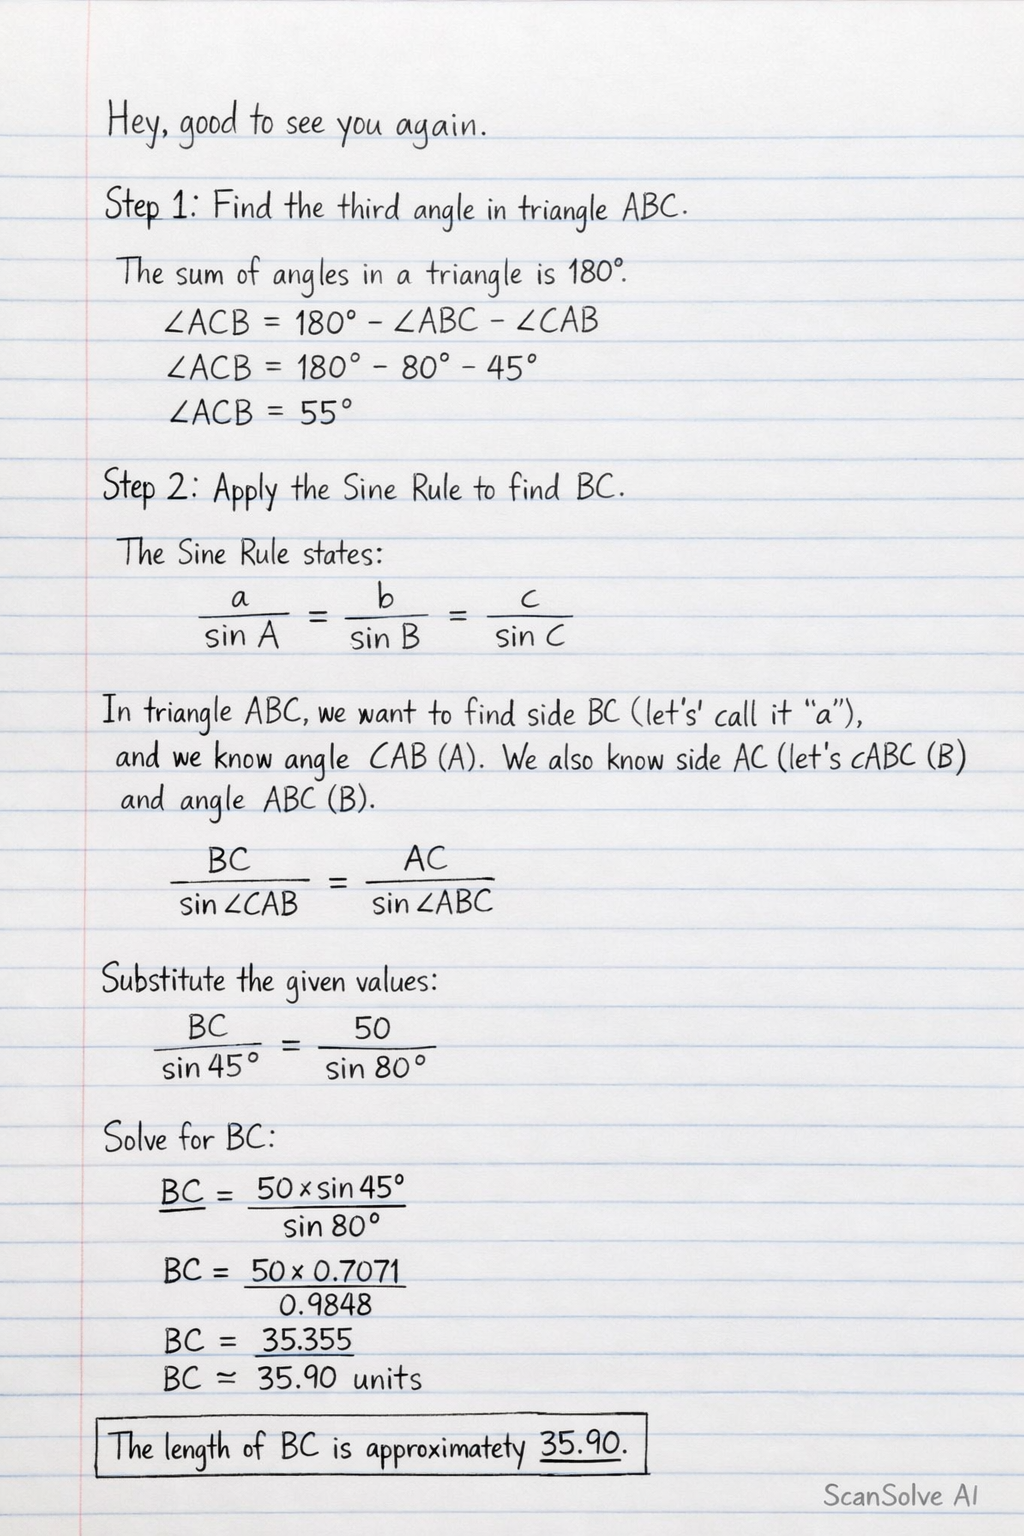 Hey, good to see you again.
Step 1: Find the third angle in triangle ABC.
The sum of angles in a triangle is 180°.
∠ACB = 180° - ∠ABC - ∠CAB
∠ACB = 180° - 80° - 45°
∠ACB = 55°
Step 2: Apply the Sine Rule to find BC.
The Sine Rule states:
a / sin A = b / sin B = c / sin C
In triangle ABC, we want to find side BC (let's' call it "a"),
and we know angle CAB (A). We also know side AC (let's cABC (B)
and angle ABC (B).
BC / sin ∠CAB = AC / sin ∠ABC
Substitute the given values:
BC / sin 45° = 50 / sin 80°
Solve for BC:
BC = 50 × sin 45° / sin 80°
BC = 50 × 0.7071 / 0.9848
BC = 35.355
BC ≃ 35.90 units
The length of BC is approximatety 35.90.
ScanSolve AI